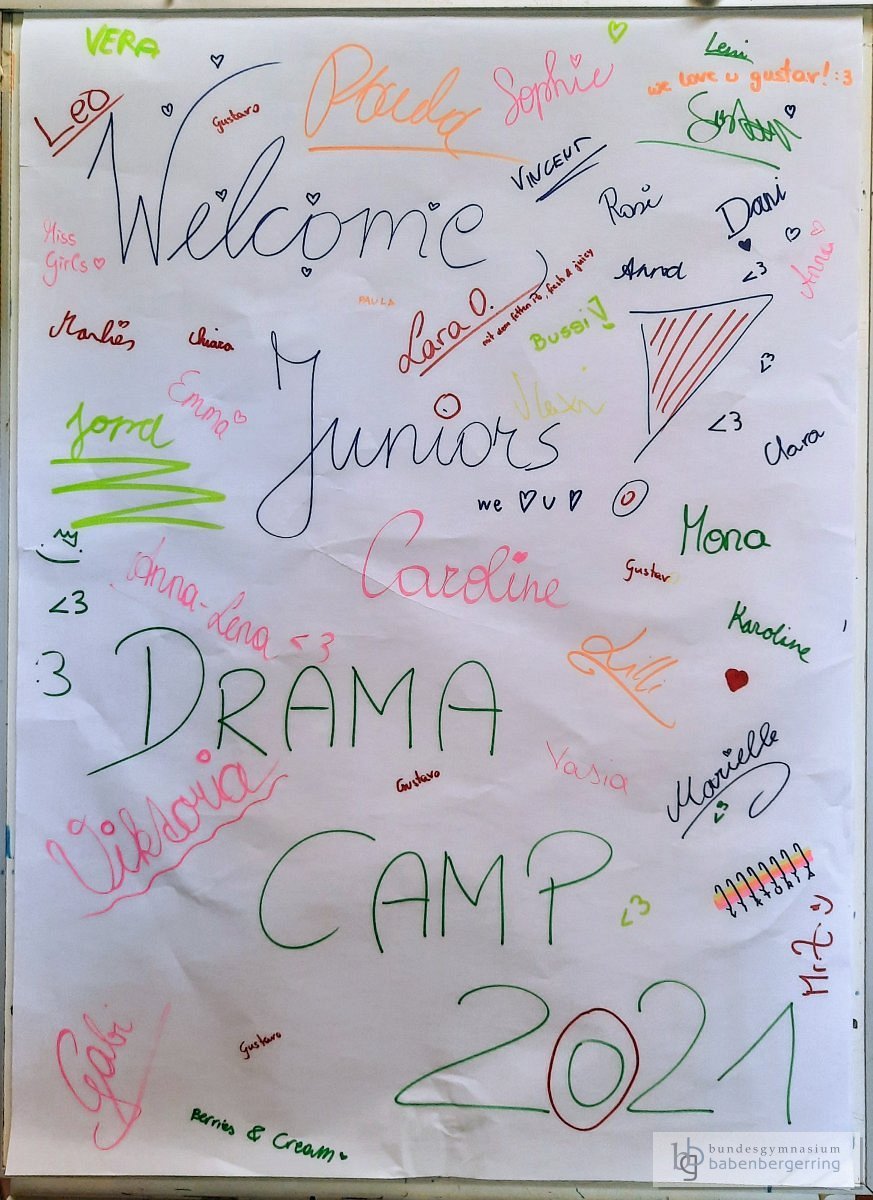 VERA
Leni
we love u gustav! :3
Leo
Gustavo
Paula
Sophie
VINCENT
Welcome
Rosi
Dani
Miss
Girls
Anna
<3
Anna
PAULA
Lara O.
Bussi!
Marlies
Chiara
Emma
Juniors
<3
<3
Clara
Jona
we ♡ u ♡
Mona
Caroline
Gustav
<3
Anna-Lena <3
Karoline
:3
Lilli
DRAMA
Gustavo
Vasia
Marielle
<3
Viktoria
CAMP
<3
Mr Z :)
2021
Gabi
Gustavo
Berries & Cream
bundesgymnasium
babenbergerring